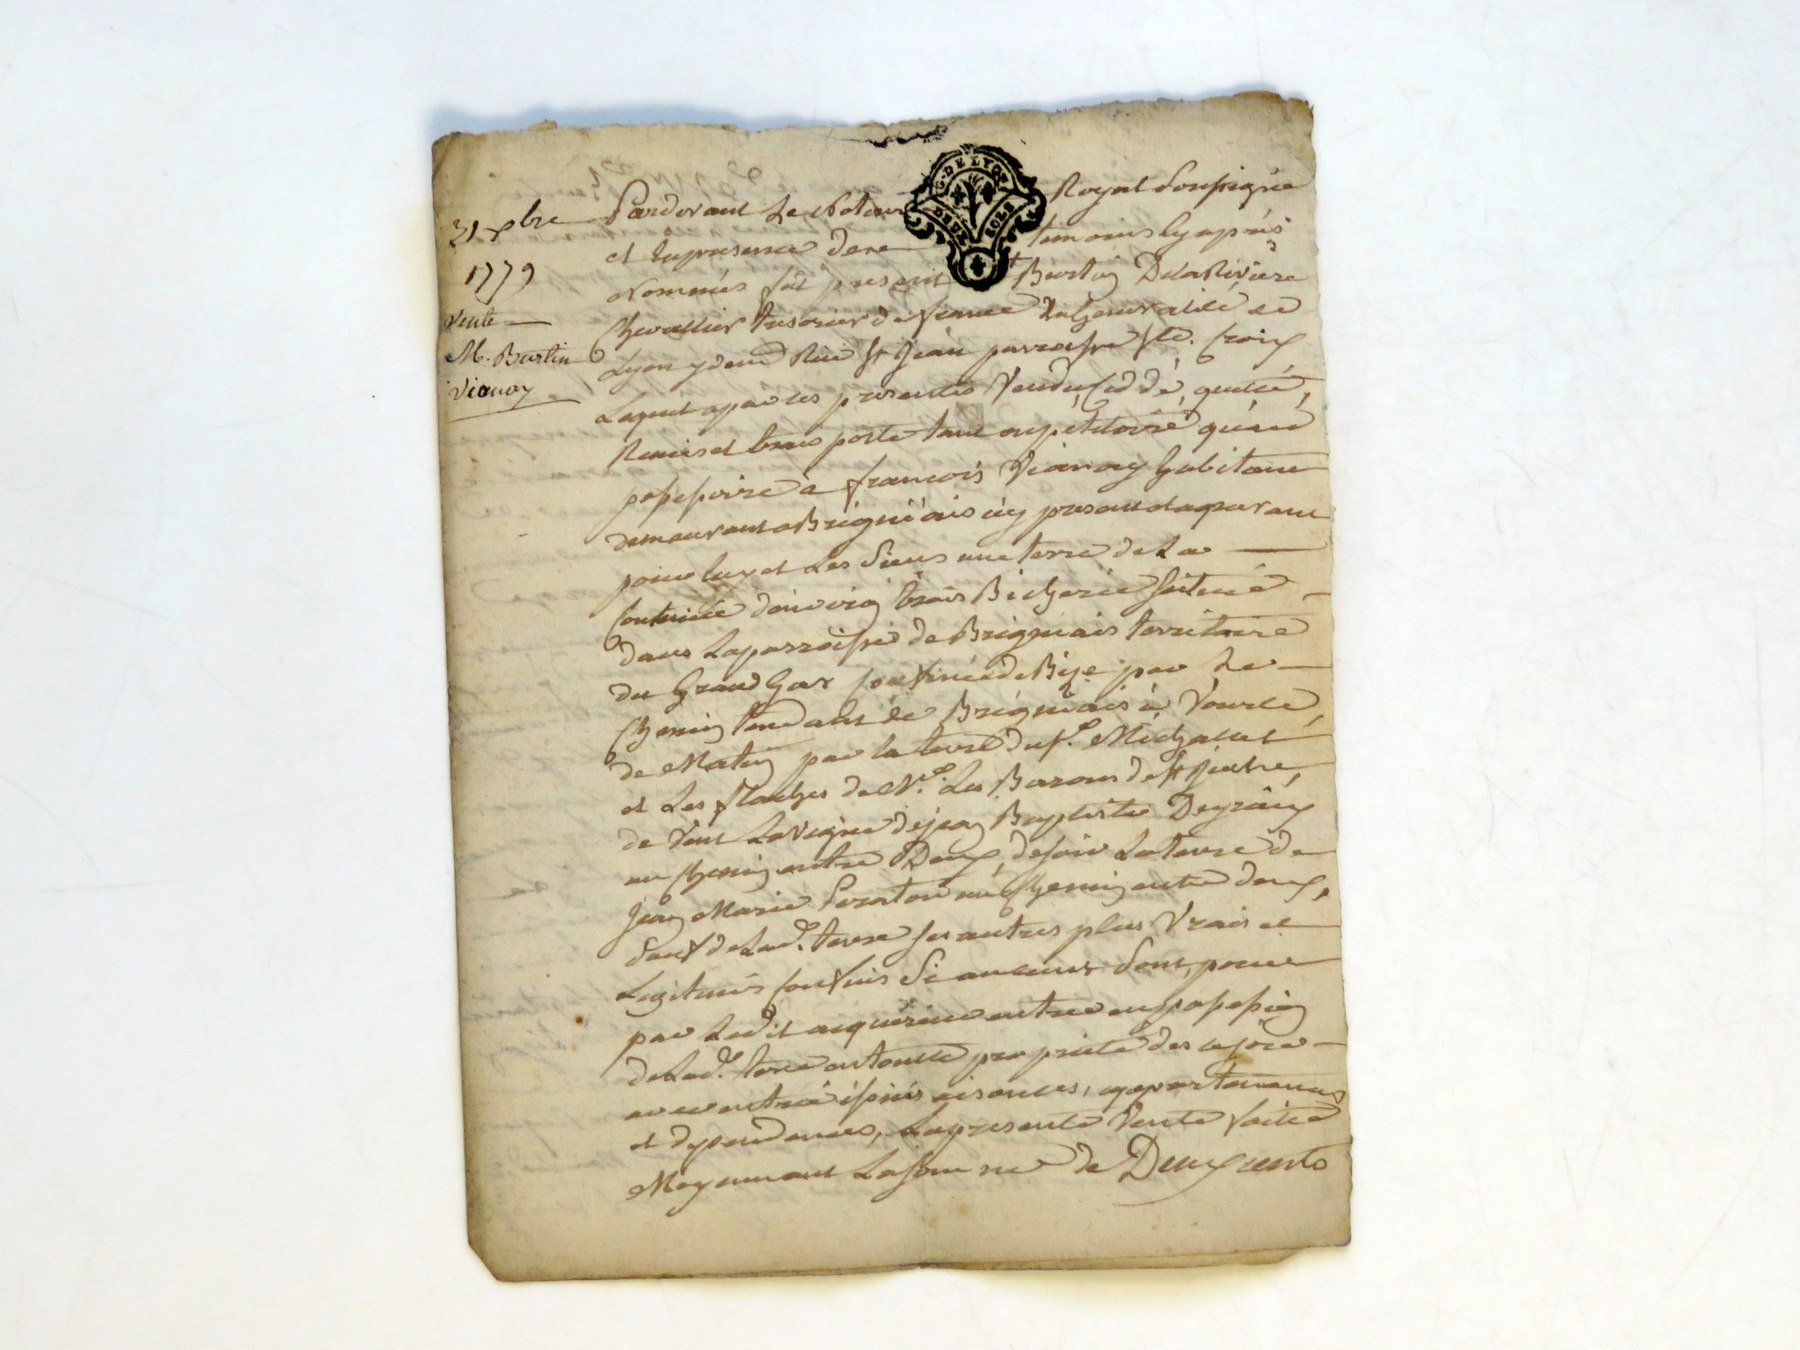 G. DE LYON
DEUX SOLS
31 xbre
1779
Vente
M. Burtin
Vianay
Pardevant Le Notaire Royal Soussigné
et en presence de temoins cy après
Nommés fût present Burtin Delarivière
Chevallier tresorier de france En Generalité de
Lyon y dem.t Rüe St Jean parroisse Ste. Croix
Lequel a par ces presentes Vendu, Ceddé, quitté,
Remis et transporté tant au petitoire qu'au
possessoire a francois Vianay habitant
demeurant a Brignais icy present et aquerant
pour luy et Les Siens une terre de La
Contenüe d'environ trois Bicherée Scitüée
dans La parroisse de Brignais territoire
du Grand Gar Confinée de Bize par Le
Chemin tendant de Brignais à Vourle,
de Matin par la terre du s.r Michallet
et Les de M.rs Les Barons de St
de Vent La Vigne de jean Baptiste Degrain
un Chemin entre Deux, de soir La terre de
Jean Marie un Chemin entre deux,
Sauf de Lad.e terre ses autres plus Vrais et
Legitimes Confins Si aucuns Sont, pour
par Ledit aquéreur entrer en possession
de Lad.e terre en toutte proprieté des ce jour
avec entrée issües aisances, appartenances
et dependances, La presente Vente faitte
Moyennant La somme de Deux cents